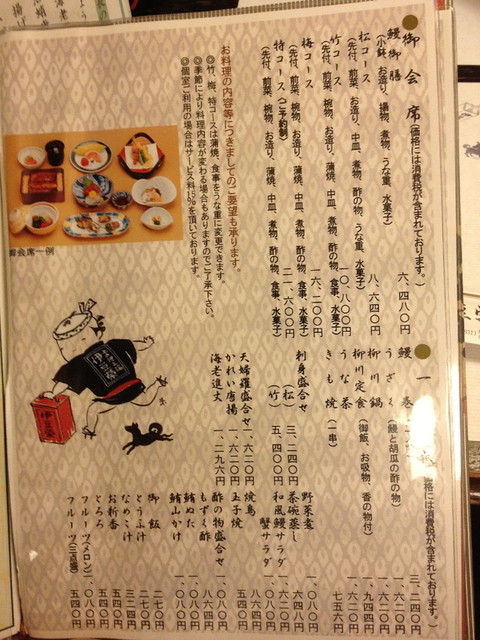 御会席(価格には消費税が含まれております。)
鰻御膳 六、四八〇円
(小鉢、お造り、揚物、煮物、うな重、水菓子)
松コース 八、六四〇円
(先付、前菜、お造り、中皿、煮物、酢の物、うな重、水菓子)
竹コース 一〇、八〇〇円
(先付、前菜、椀物、お造り、蒲焼、中皿、煮物、酢の物、食事、水菓子)
梅コース 一六、二〇〇円
(先付、前菜、椀物、お造り、蒲焼、中皿、煮物、酢の物、食事、水菓子)
特コース(ご予約制) 二一、六〇〇円
(先付、前菜、椀物、お造り、蒲焼、中皿、煮物、酢の物、食事、水菓子)
お料理の内容等につきましてのご要望も承ります。
◎竹、梅、特コースは蒲焼、食事をうな重に変更できます。
◎季節により料理内容が変わる場合もありますのでご了承下さい。
◎個室ご利用の場合はサービス料15%を頂いております。
御会席一例
伊豆榮
伊豆榮
価格には消費税が含まれております。)
鰻巻 三、二四〇円
うざく(鰻と胡瓜の酢の物)
柳川鍋
柳川定食(御飯、お吸物、香の物付)
うな茶
きも焼(一串) 七五六円
刺身盛合せ
(松) 三、二四〇円
(竹) 五、四〇〇円
天婦羅盛合せ 一、六二〇円
かれい唐揚 一、六二〇円
海老進丈 一、二九六円
野菜煮 一、〇八〇円
茶碗蒸し 八六四円
和風鰻サラダ 一、六二〇円
蟹サラダ
焼鳥
玉子焼
酢の物盛合せ 一、〇八〇円
もずく酢 八六四円
鮪ぬた 一、〇八〇円
鮪山かけ 一、〇八〇円
御飯 二七〇円
とうふ汁 二七〇円
なめこ汁 三二四円
お新香 五四〇円
とろろ 五四〇円
フルーツ(メロン) 一、〇八〇円
フルーツ(三点盛) 五四〇円